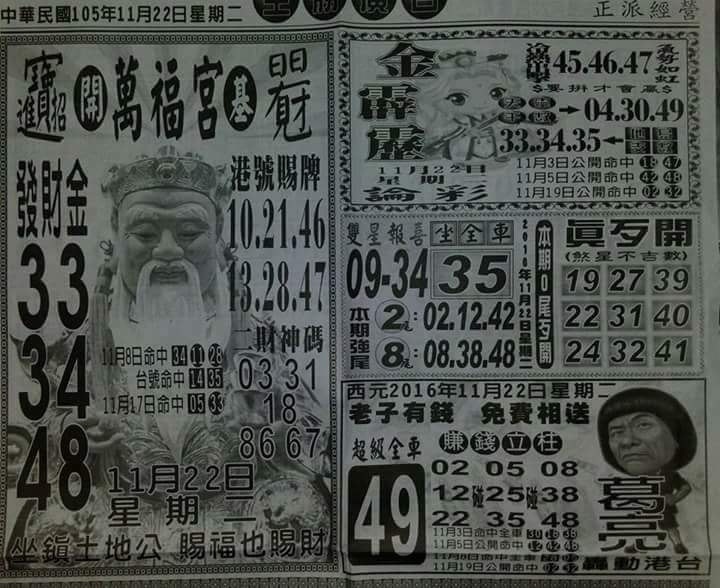 中華民國105年11月22日星期二
正派經營
招財進寶
開
萬福宮
基
發財金
33
34
48
港號賜牌
10.21.46
13.28.47
二財神碼
03 31
18
86 67
11月8日命中 34 11 28
台號命中 14 35
11月17命中 05 33
11月22日
星期二
坐鎮土地公 賜福也賜財
金霹靂
45.46.47
$要拼才會贏$
04.30.49
33.34.35
11月22日
星期
論彩
11月3日公開命中 18 47
11月5日公開命中 42 48
11月19日公開命中 02 32
雙星報喜
09-34
坐全車
35
本期強尾
2尾:02.12.42
8尾:08.38.48
2016年11月22日星期二
本期0尾歹開
真歹開
(煞星不吉數)
19 27 39
22 31 40
24 32 41
西元2016年11月22日星期二
老子有錢 免費相送
超級全車
49
賺錢立柱
02 05 08
12碰25碰38
22 35 48
11月3日命中全車 30 18 38
11月5日公開命中 12 42 48
11月19日公開命中 02
葛亮
轟動港台